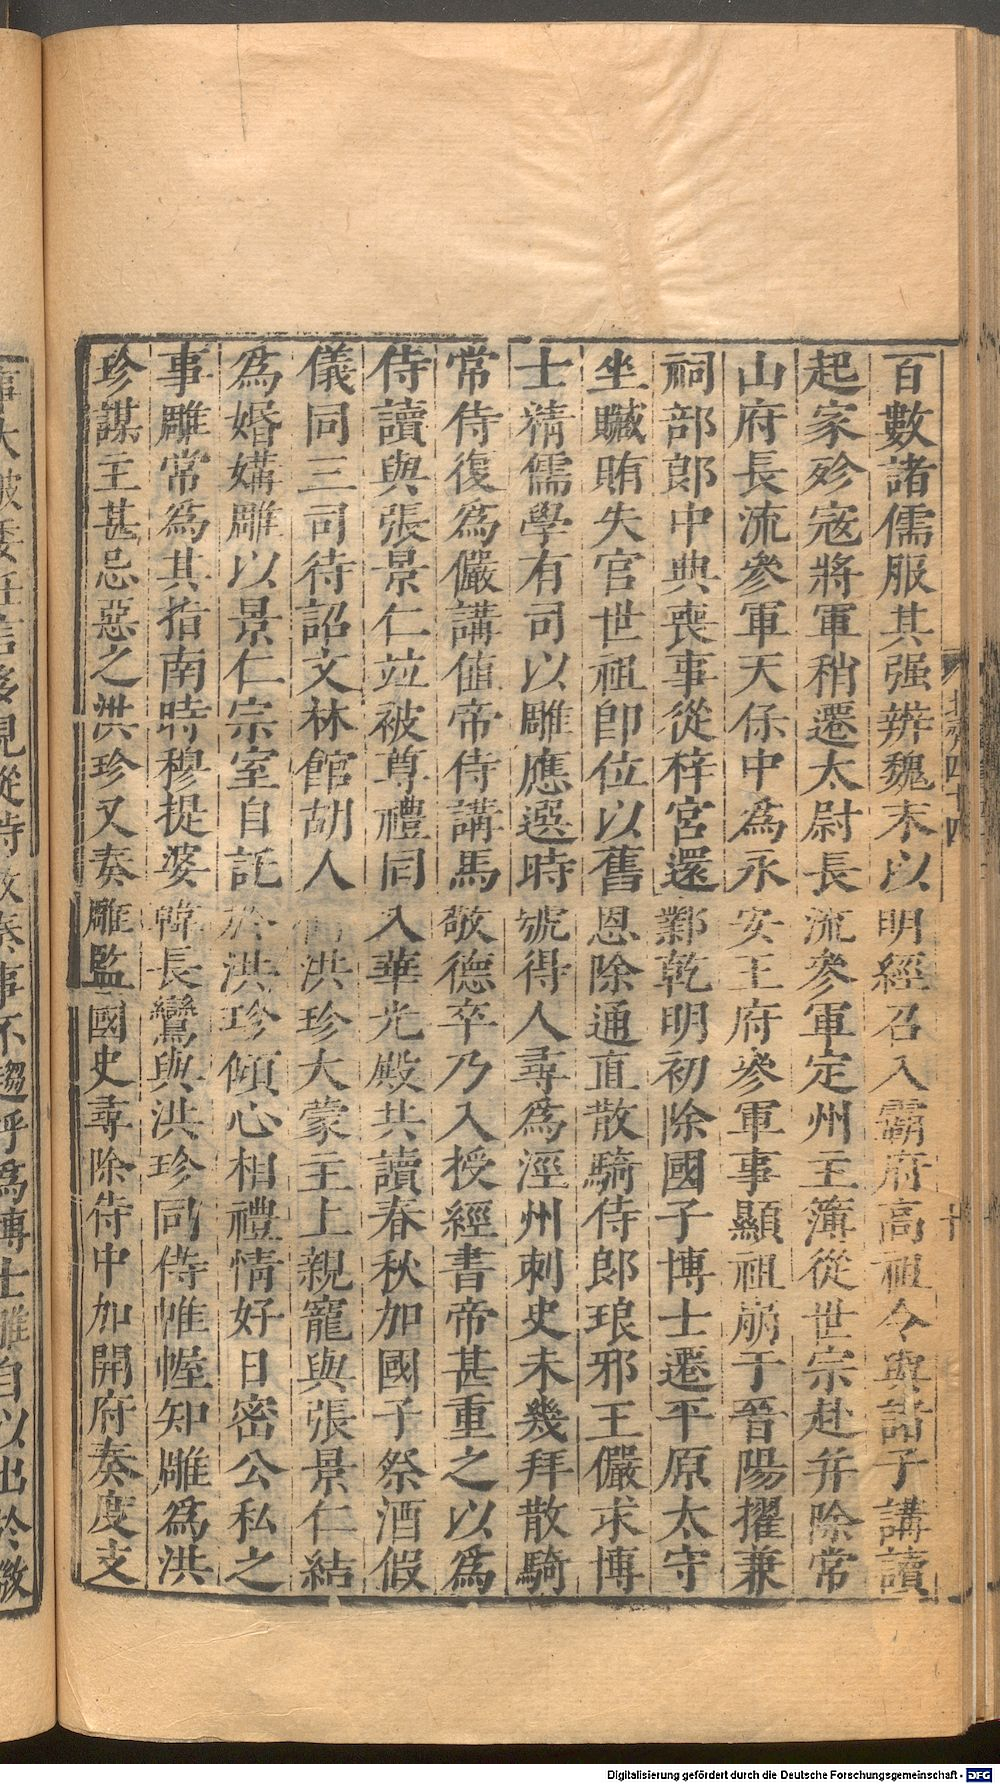 百數諸儒服其强辨魏末以明經召入霸府高祖令與諸子講讀
起家殄宼將軍稍遷太尉長流參軍定州主簿從世宗赴并除常
山府長流參軍天保中為永安王府參軍事顯祖崩于晉陽擢兼
祠部郎中典喪事從梓宮還鄴乾明初除國子博士遷平原太守
坐贓賄失官世祖即位以舊恩除通直散騎侍郎琅邪王儼求博
士精儒學有司以雕應選時號得人尋為涇州刺史未幾拜散騎
常侍復為儼講值帝侍講馬敬德卒乃入授經書帝甚重之以為
侍讀與張景仁並被尊禮同入華光殿共讀春秋加國子祭酒假
儀同三司待詔文林館胡人何洪珍大蒙主上親寵與張景仁結
為婚媾雕以景仁宗室自託於洪珍傾心相禮情好日密公私之
事雕常為其指南時穆提婆韓長鸞與洪珍同侍帷幄知雕為洪
珍謀主甚忌惡之洪珍又奏雕監國史尋除侍中加開府奏度支
北齊四十四
十
Digitalisierung gefördert durch die Deutsche Forschungsgemeinschaft - DFG